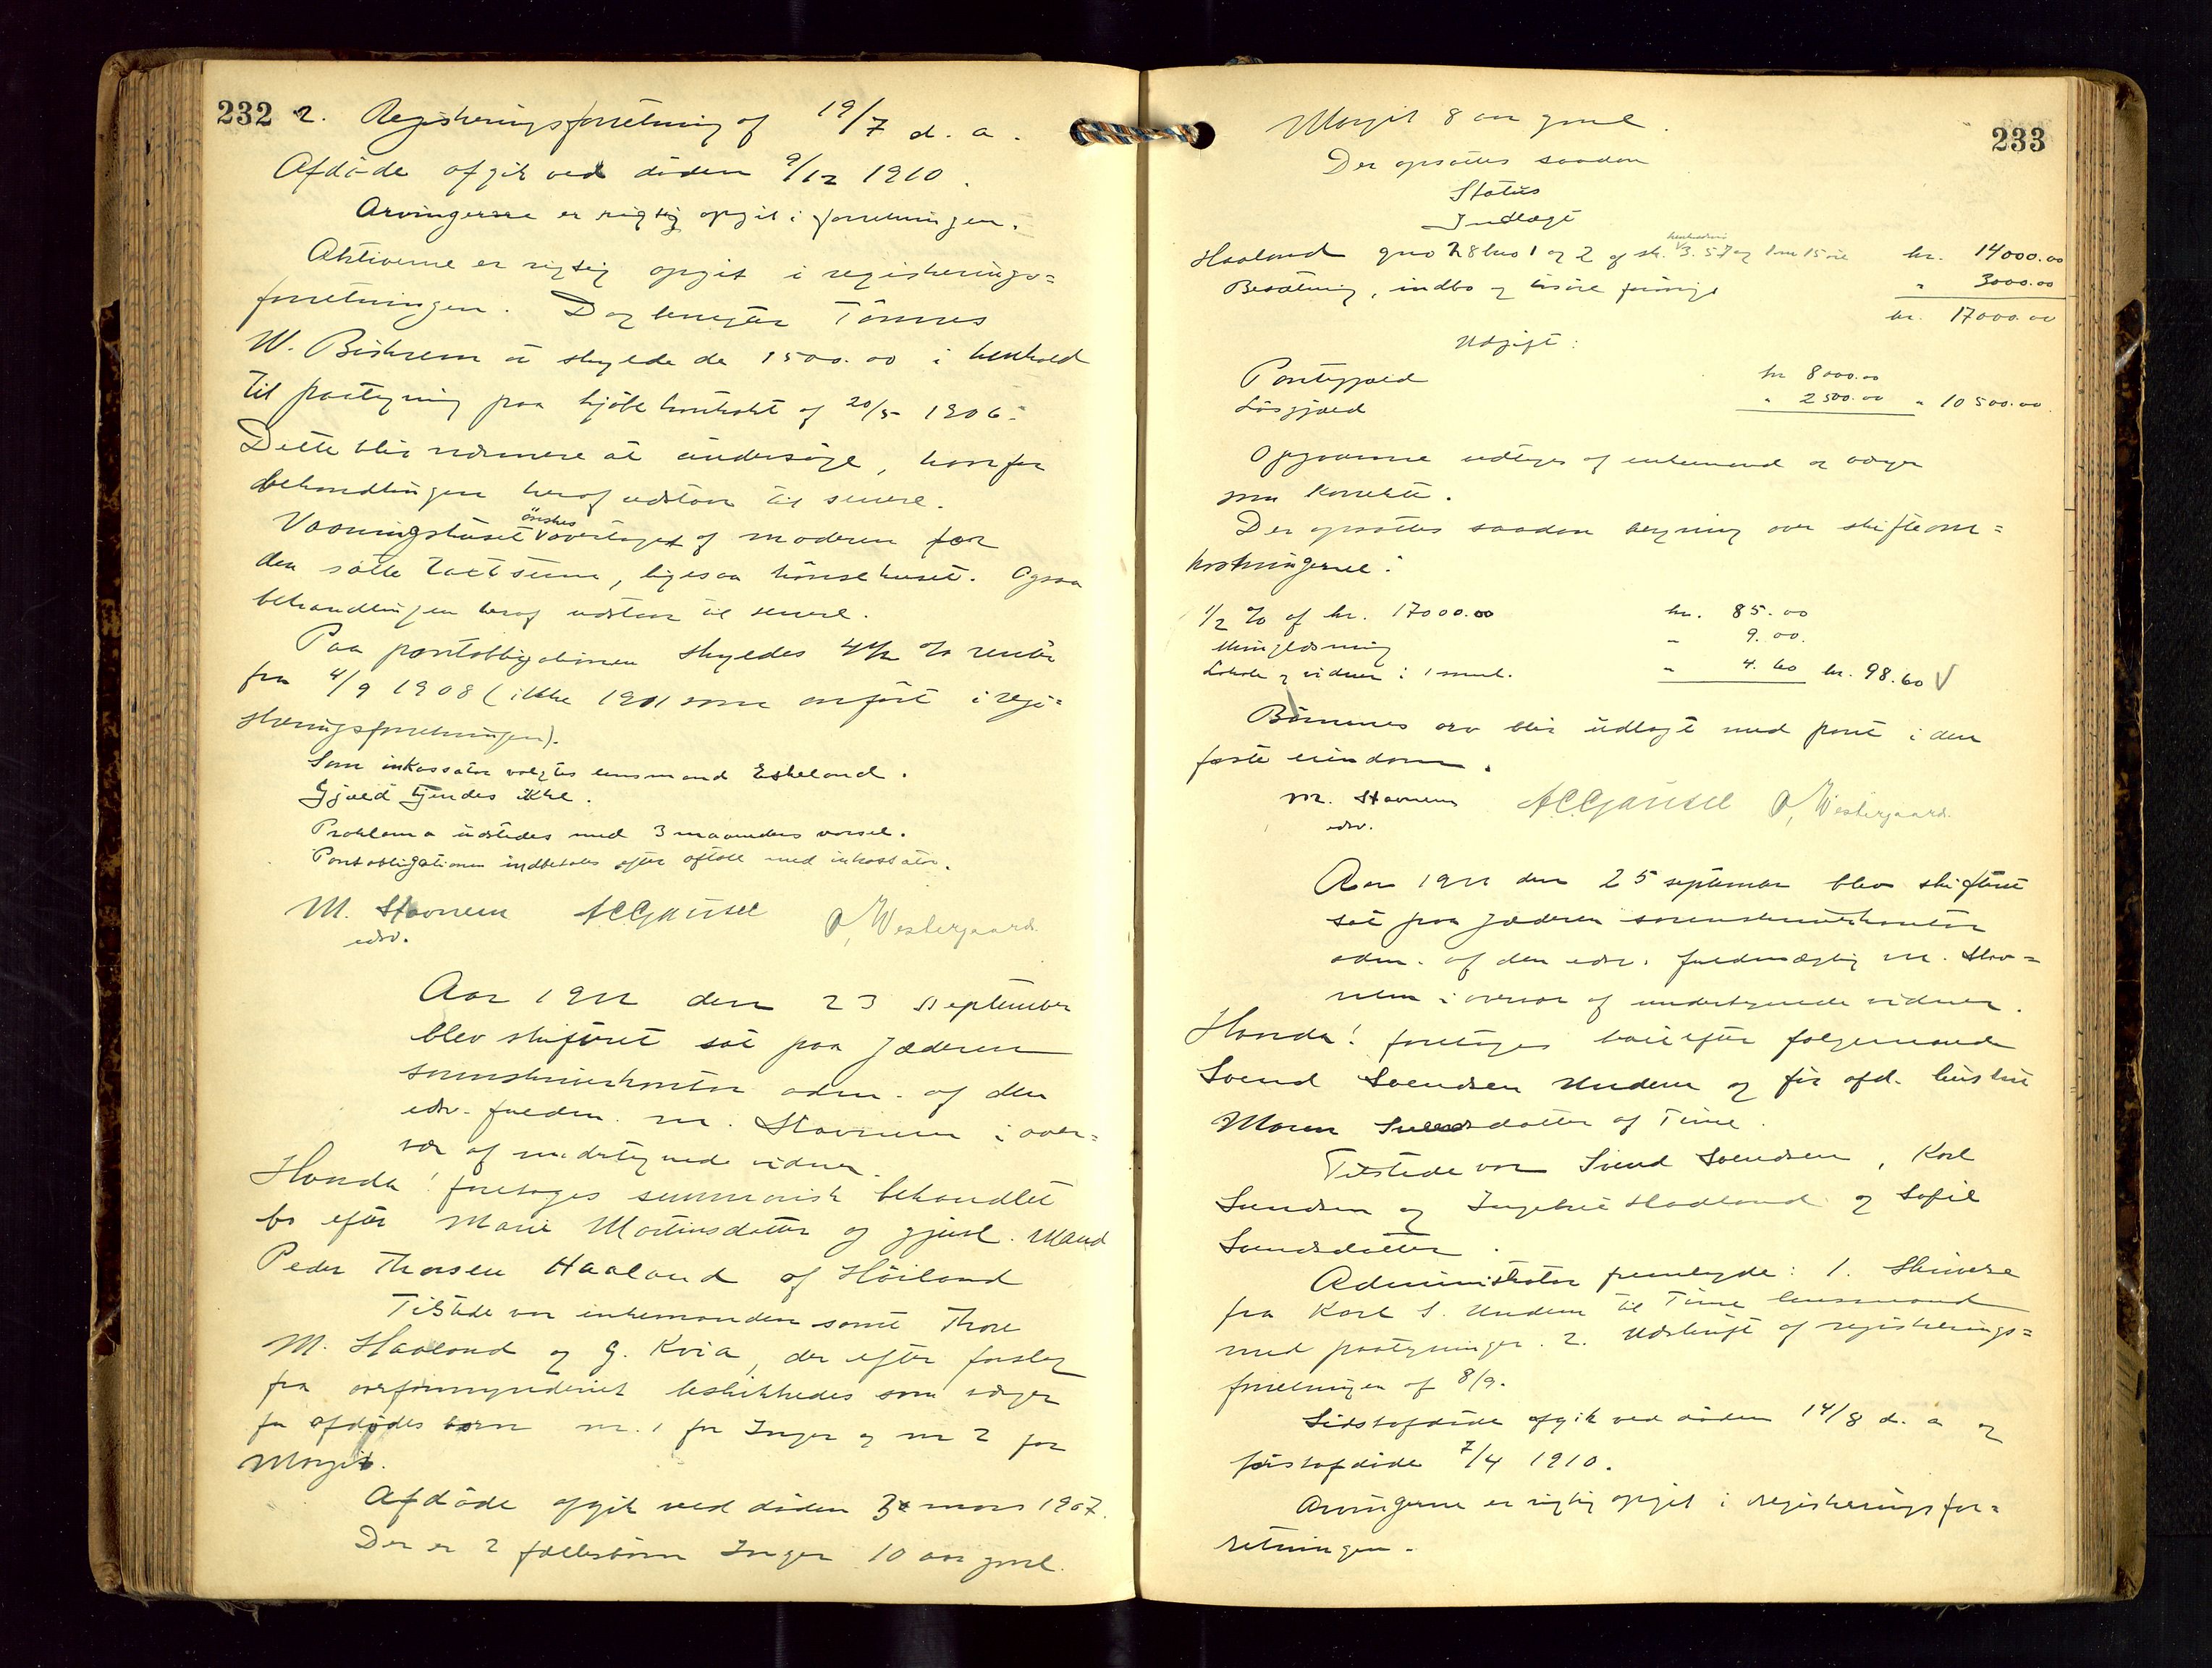 232
2. Registreringsforretning af 19/7 d. a.
Afdöde afgik ved döden 9/12 1910.
Arvingerne er rigtig opgit i forretningen.
Aktiverne er rigtig opgit i registrerings=
forretningen. Dog benegter Tönnes
W. Bishrem at skylde de 1500.00 i henhold
til paategning paa kjöbekontrakt af 20/5 1906.
Dette blir nærmere at undersöge, hvorfor
behandlingen herav utstaar til senere.
Vaaningshuset önskes overtaget af moderen for
den satte takstsum, ligesaa hönsehuset. Ogsaa
behandlingen herav utstaar til senere.
Paa pantobligationen skyldes 4 1/2 % renter
fra 4/9 1908 (ikke 1901 som anfört i regi=
streringsforretningen).
Som inkassator valgtes lensmand Eskeland.
Gjæld kjendes ikke.
Proklama utstedes med 3 maaneders varsel.
Pantobligationen indbetales efter aftale med inkassator.
M. Stavnem ACGausel O, Westergaard.
edsv.
Aar 1911 den 23 september
blev skifteret sat paa Jæderen
sorenskriverkontor adm. af den
edsv. fuldm. M. Stavnem i over=
vær af undertegnede vidner.
Hvorda! foretoges summarisk behandlet
bo efter Marie Martinsdatter og gjenl. mand
Peder Thorsen Haaland af Höiland
Tilstede var enkemanden samt Thore
M. Haaland og G. Kvia, der efter forslag
fra overformynderiet beskikkedes som værger
for afdödes börn nr. 1 for Inger og nr 2 for
Margit.
Afdöde afgik ved döden 3 mars 1907.
Der er 2 fællesbörn Inger 10 aar gml.
233
Margit 8 aar gml.
Der opsattes saadan
Status
Indtægt
Haaland gno 28 bno 1 og 2 af sk. 3.57 og 1 m 15 öre kr. 14000.00
Besætning, indbo og lösöre forövrigt " 3000.00
kr. 17000.00
Utgift:
Pantegjæld kr 8000.00
Lösgjæld " 2500.00 " 10500.00
Opgaverne vedtages af enkemand og værger
som korrekte.
Der opsattes saadan regning over skifteom=
kostningerne:
1/2 % af kr. 17000.00 kr. 85.00
Thinglæsning " 9.00.
Lokale og vidner i 1 smml. " 4.60 kr. 98.60 V
Börnenes arv blir utlagt med pant i den
faste eiendom.
M. Stavnem ACGausel O, Westergaard.
edsv.
Aar 1911 den 25 september blev skifteret
sat paa Jæderen sorenskriverkontor
adm. af den edsv. fuldmægtig M. Stav=
nem i overvær af undertegnede vidner.
Hvorda! foretoges boet efter folgemand
Svend Svendsen Undem og för afd. hustru
Maren Svendsdatter af Time.
Tilstede var Svend Svendsen, Karl
Svendsen og Ingebret Hadland og Sofie
Svendsdatter.
Administrator fremlagde: 1. Skrivelse
fra Karl S. Undem til Time lensmand
med paategninger. 2. Utskrift af registrerings=
forretningen af 8/9.
Sidstafdöde afgik ved döden 14/8 d. a og
förstafdöde 7/4 1910.
Arvingerne er rigtig opgit i registreringsfor=
retningen.